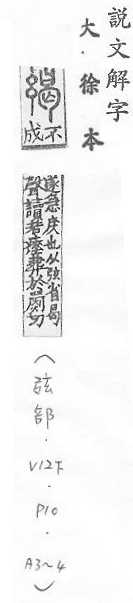 說文解字
大.徐本
不
成
遂急戾也从弦省曷
聲讀若瘞葬於罽切
(弦部.V12下.P10.A3~4)